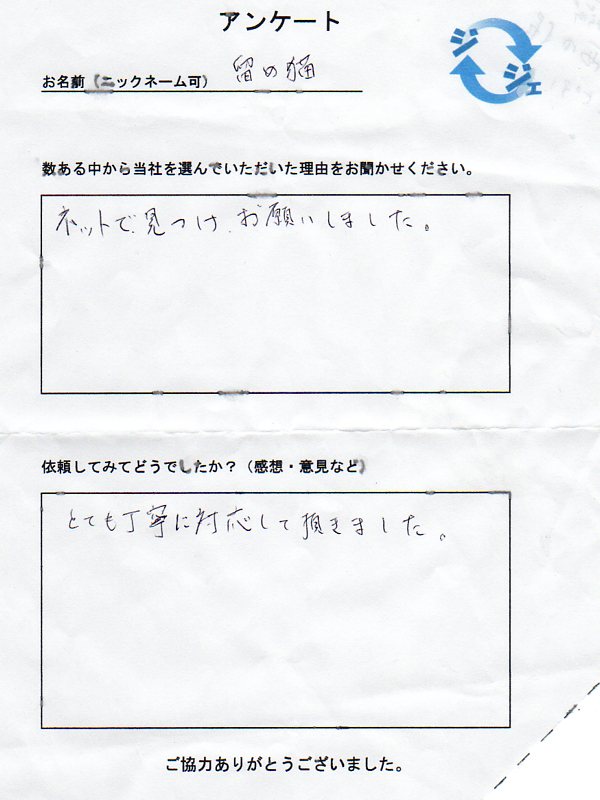 アンケート
お名前（ニックネーム可） 留の猫
ジジェ
数ある中から当社を選んでいただいた理由をお聞かせください。
ネットで見つけ、お願いしました。
依頼してみてどうでしたか？（感想・意見など）
とても丁寧に対応して頂きました。
ご協力ありがとうございました。